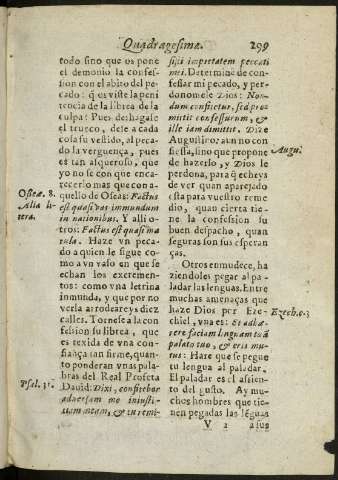 Quadragesimæ. 299
todo sino que os pone
el demonio la confes-
sion con el abito del pe-
cado! q̃ os viste la peni
tẽcia de la librea de la
culpa! Pues deshagase
el trueco, dele a cada
cosa su vestido, al peca-
do la verguença, pues
es tan alqueroso, que
yo no se con que enca-
recerlo mas que con a-
quello de Oseas: Factus
est quasi vas immundum
in nationibus. Y alli o-
tros: Factus est quasi ma
tula. Haze vn peca-
do a quien le sigue co-
mo a vn vaso en que se
echan los excremen-
tos: como vna letrina
inmunda, y que por no
verla arrodeareys diez
calles. Tornese a la con
fession su librea, que
es texida de vna con-
fiança tan firme, quan-
to ponderan vnas pala-
bras del Real Profeta
Dauid: Dixi, confitebor
aduersum me iniusti-
tiam meam, & tu remi-
Oseæ. 8.
Alia li-
tera.
Psal. 31.
sisti impietatem peccati
mei. Determinè de con-
fessar mi pecado, y per-
donome lo Dios: Non-
dum confitetur, sed pro-
mittit confessurum, &
ille iam dimittit. Dize
Augustino: aun no con
fiessa, sino que propone
de hazerlo, y Dios le
perdona, para q̃ echeys
de ver quan aparejado
esta para vuestro reme
dio, quan cierta tie-
ne la confession su
buen despacho, quan
seguras son sus esperan
ças.
Otros enmudece, ha
ziendoles pegar al pa-
ladar las lenguas. Entre
muchas amenaças que
haze Dios por Eze-
chiel, vna es: Et adhæ-
rere faciam linguam tuã
palato tuo, & eris mu-
tus: Harè que se pegue
tu lengua al paladar.
El paladar es el assien-
to del gusto. Ay mu-
chos hombres que tie-
nen pegadas las lẽguas
Augu.
Ezech. c. 3
V 2 a sus